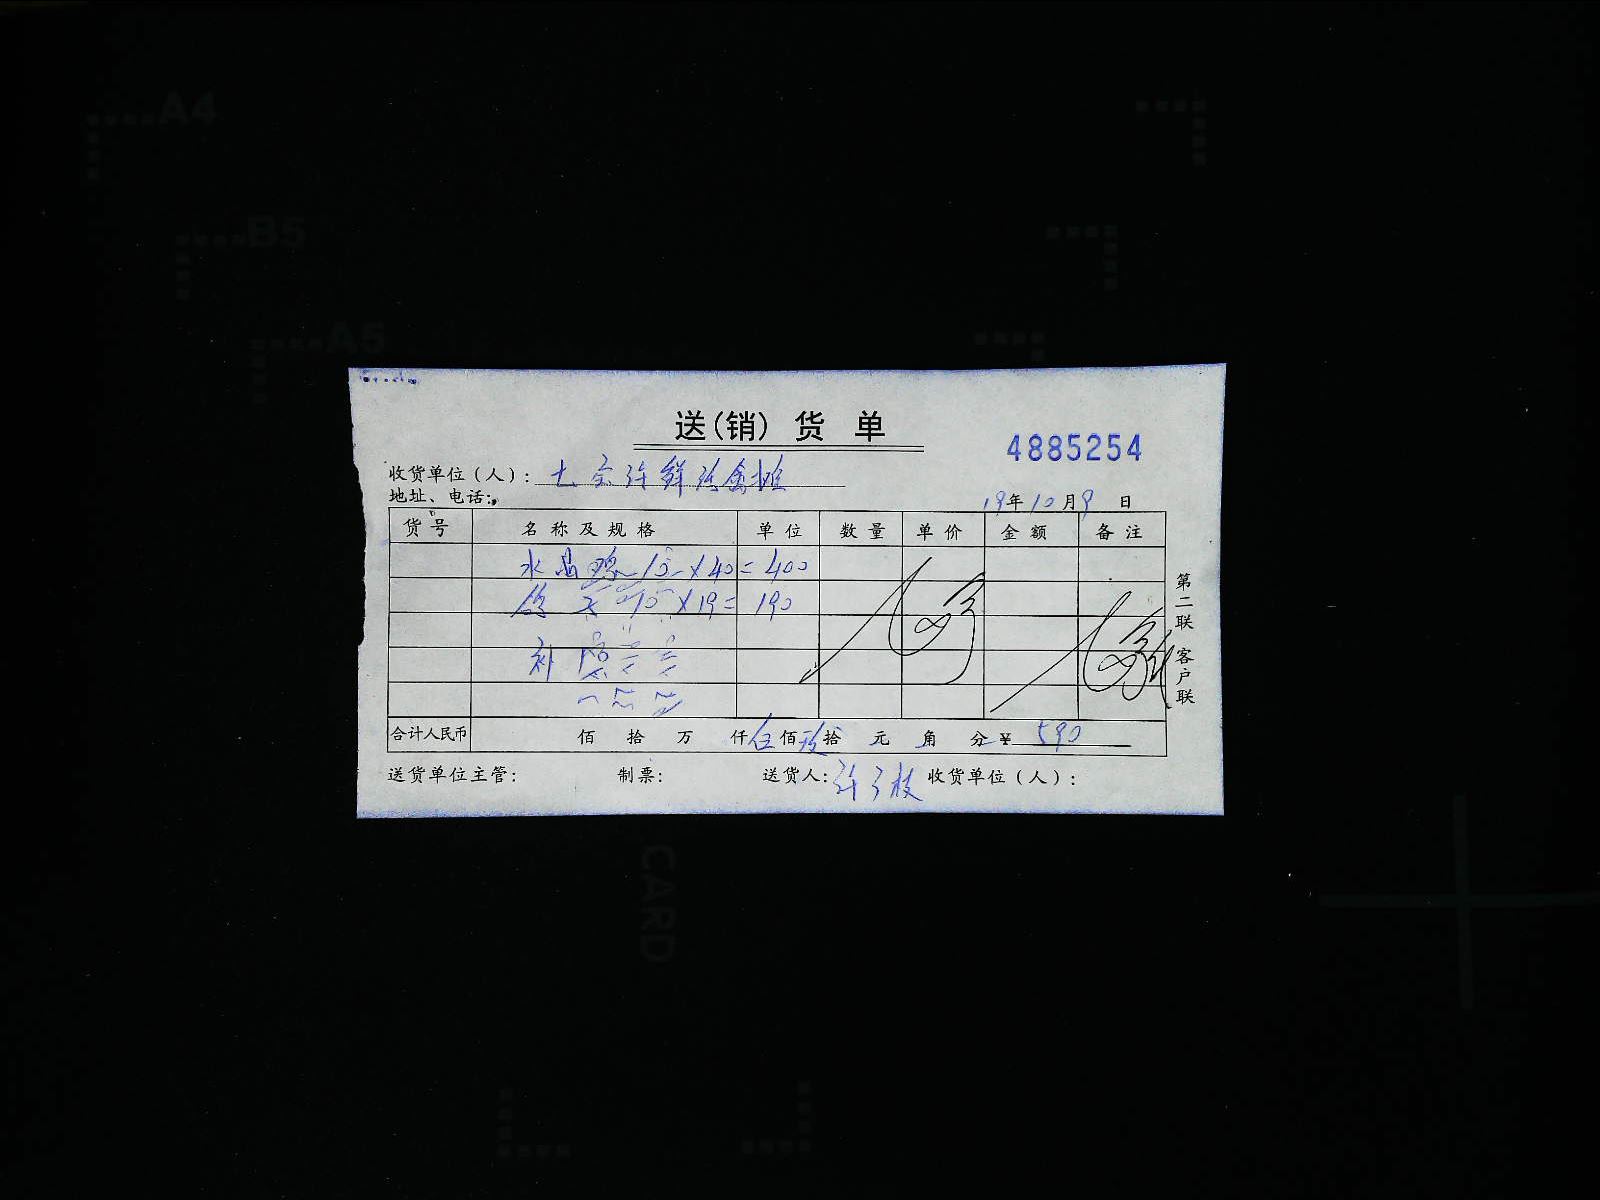 A4
B5
A5
送(销)货单
4885254
收货单位(人):七宝许鲜活禽摊
地址、电话:
19年10月9日
货号 名称及规格 单位 数量 单价 金额 备注
水晶鸡 10×40=400
鸽 10×19=190
补
第二联 客户联
合计人民币 佰 拾 万 仟伍佰玖拾 元 角 分 ¥ 590
送货单位主管: 制票: 送货人:许 收货单位(人):
CARD